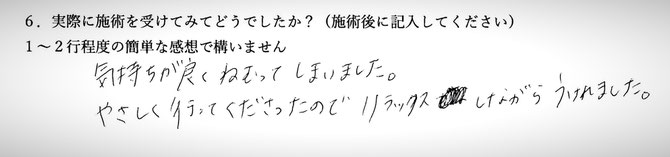 ６．実際に施術を受けてみてどうでしたか？（施術後に記入してください）
１～２行程度の簡単な感想で構いません
気持ちが良くねむってしまいました。
やさしく行ってくださったのでリラックスしながらうけれました。